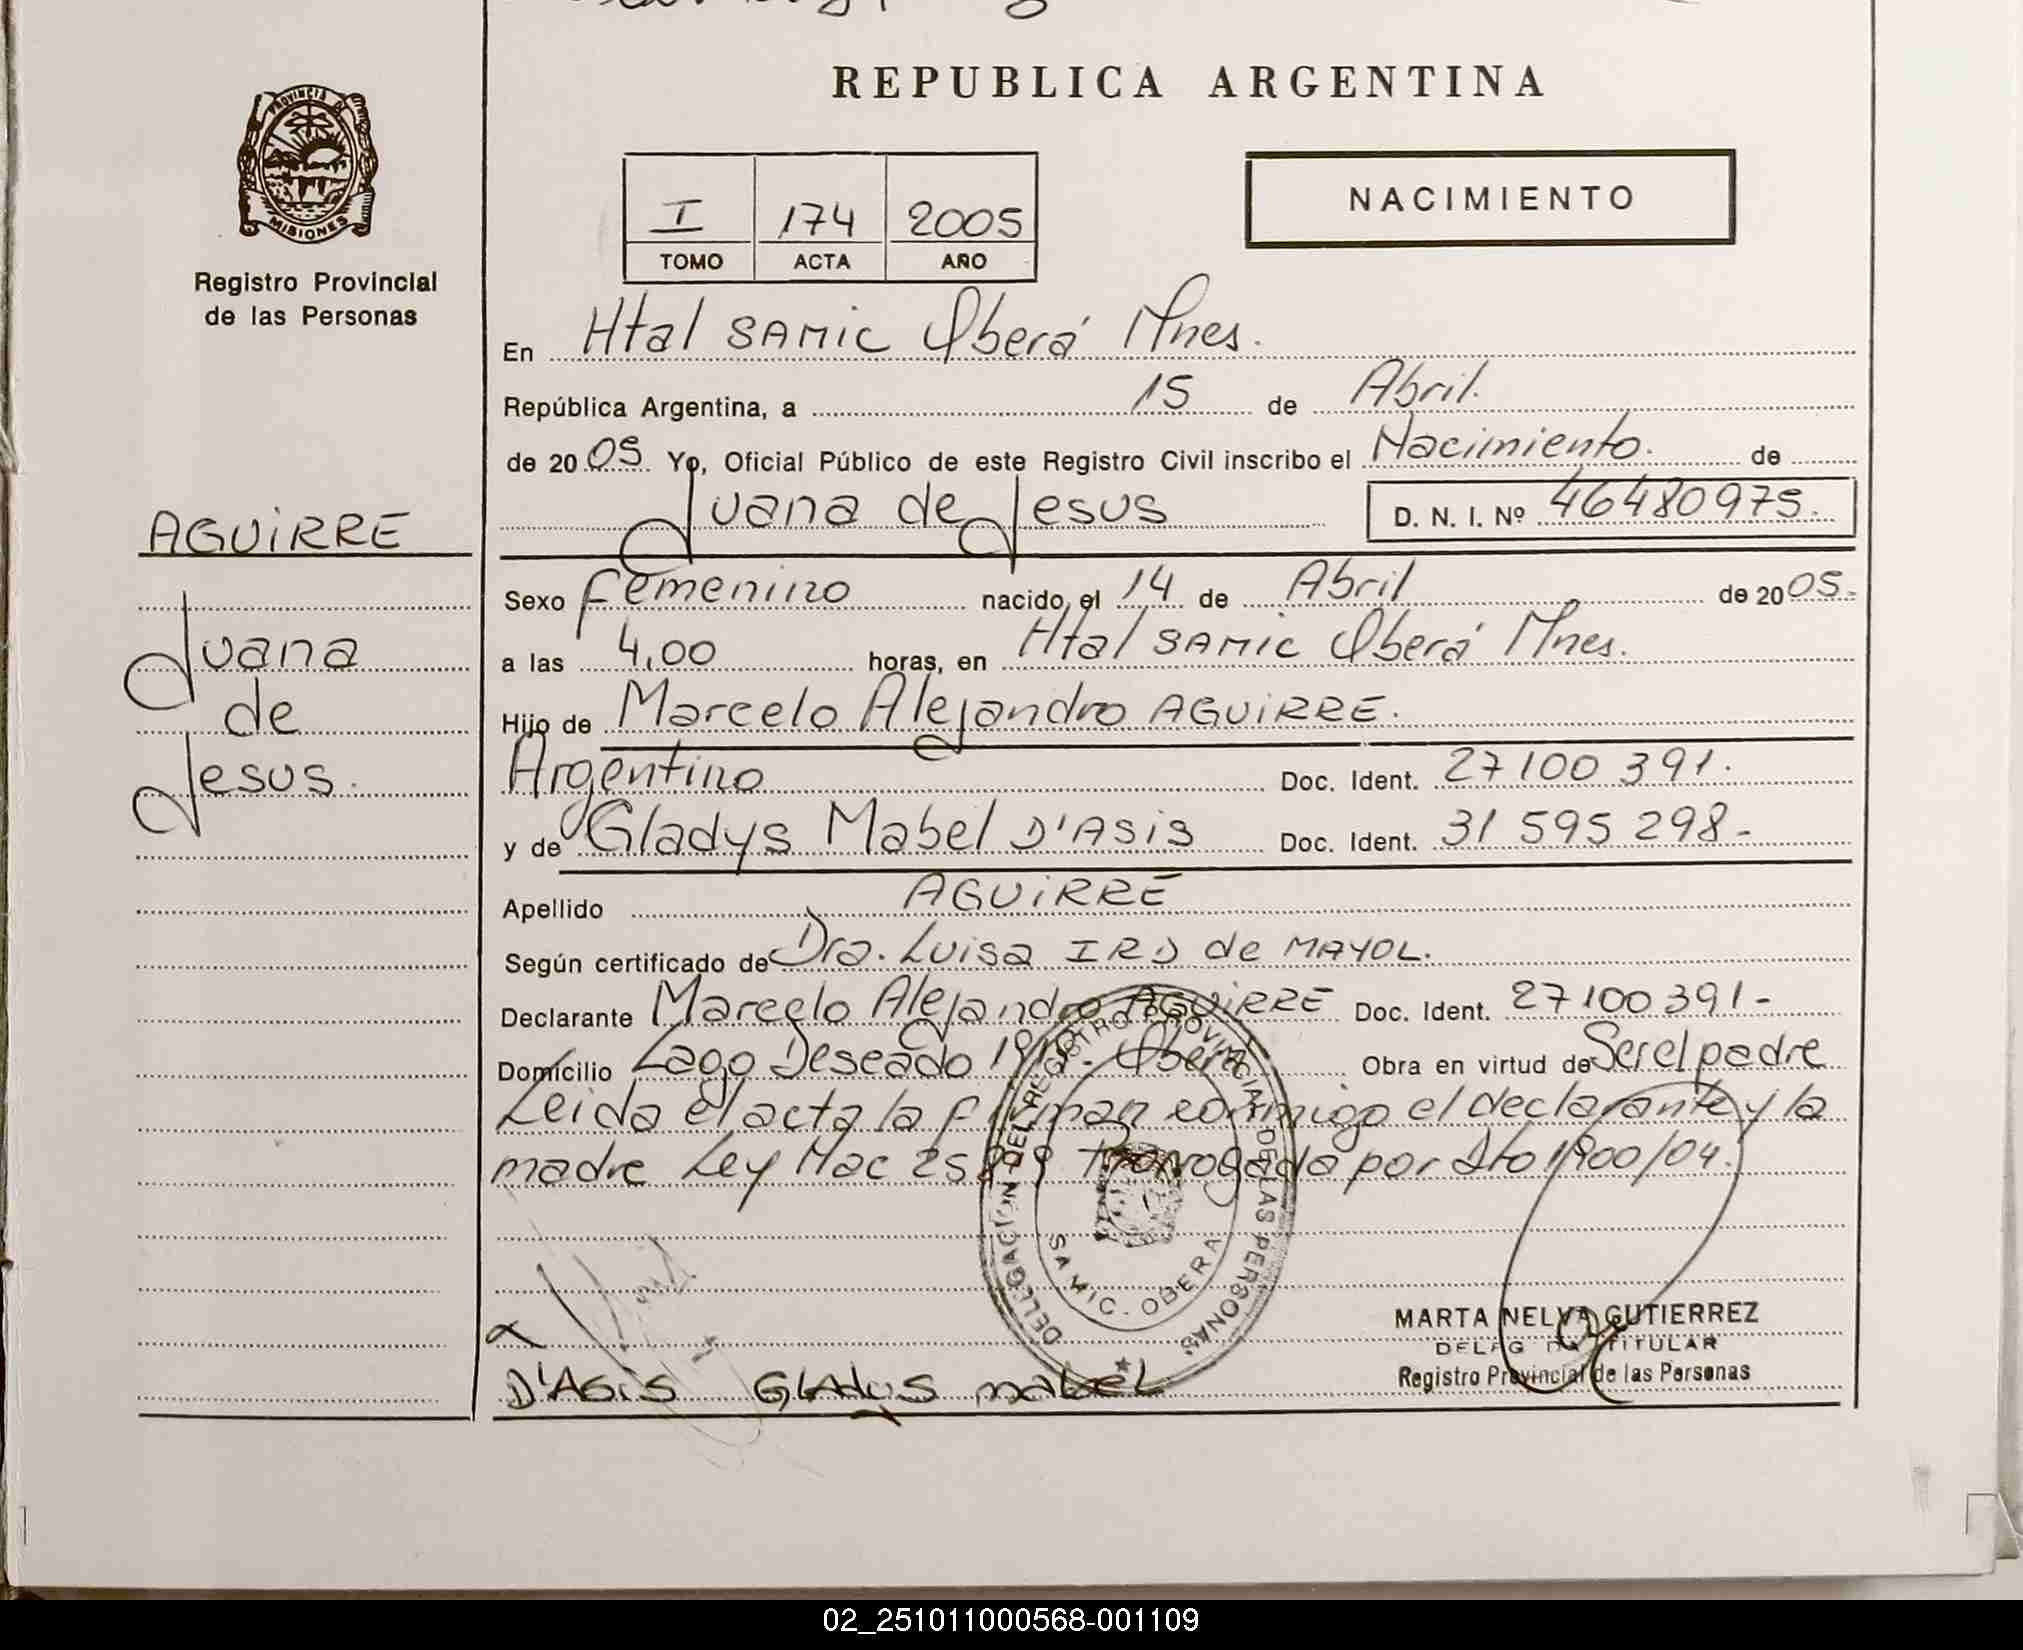 REPUBLICA ARGENTINA
PROVINCIA DE
MISIONES
Registro Provincial
de las Personas
I 174 2005
TOMO ACTA AÑO
NACIMIENTO
En Htal SAMIC Oberá Mnes.
República Argentina, a 15 de Abril.
de 20 05. Yo, Oficial Público de este Registro Civil inscribo el Nacimiento. de
Juana de Jesus D. N. I. Nº 46480975.
AGUIRRE
Juana
de
Jesus.
Sexo Femenino nacido el 14 de Abril de 20 05.-
a las 4,00 horas, en Htal SAMIC Oberá Mnes.
Hijo de Marcelo Alejandro AGUIRRE.
Argentino Doc. Ident. 27100391.
y de Gladys Mabel D'ASIS Doc. Ident. 31 595 298-
Apellido AGUIRRE
Según certificado de Dra. Luisa de MAYOL.
Declarante Marcelo Alejandro AGUIRRE Doc. Ident. 27100391-
Domicilio Lago Deseado Oberá Obra en virtud de Ser el padre
Leida el acta la firman conmigo el declarante y la
madre Ley Nac Prorrogada por Dto 1900/04.
DELEGACION DEL REGISTRO PROVINCIAL DE LAS PERSONAS
SAMIC. OBERA
D'ASiS GLAdyS mabEL
MARTA NELVA GUTIERREZ
DELEGADA TITULAR
Registro Provincial de las Personas
02_251011000568-001109